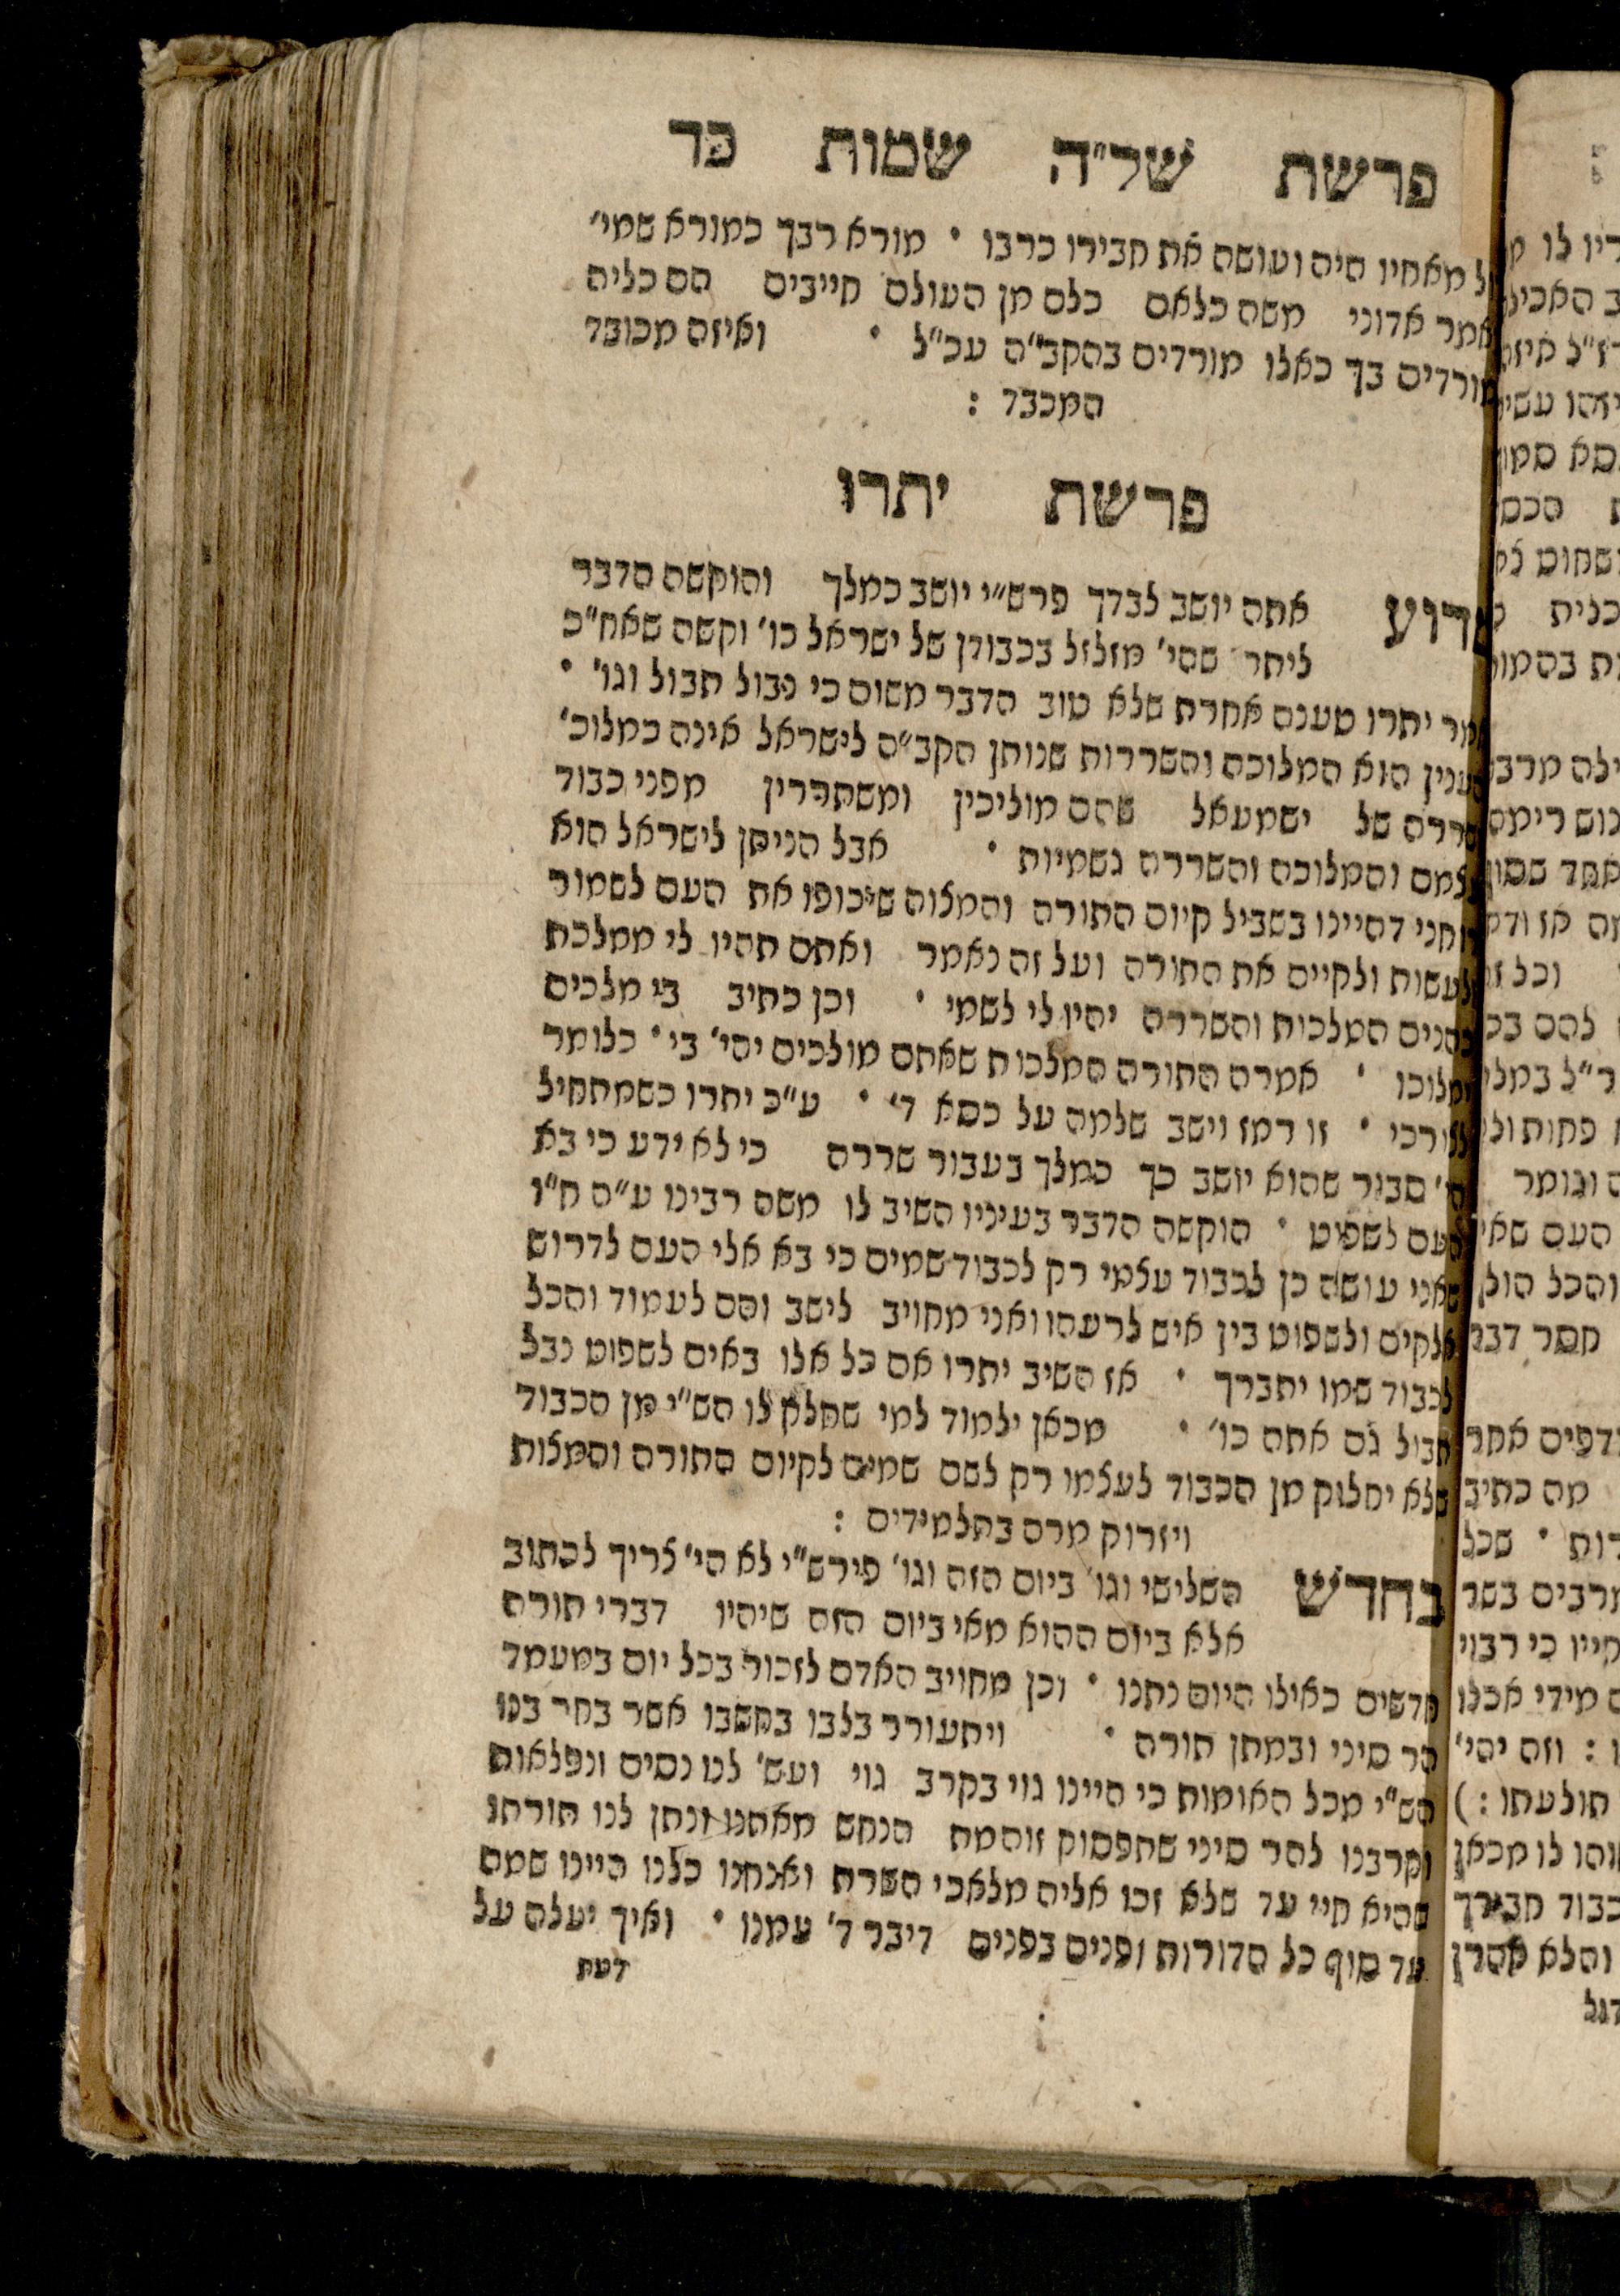 פרשת של״ה שמות כד
מאחיו היה ועושה את חבירו כרבו • מורא רבך כמורא שמי׳
אמר אדוני משה כלאם כלם מן העולם חייבים הם כליה
מורדים בך כאלו מורדים בהקב״ה עכ״ל • ואיזה מכובד
המכבד :
פרשת יתרו
אתה יושב לבדך פרש״י יושב כמלך והוקשה הדבר
ליתר׳ שהי׳ מזלזל בכבודן של ישראל כו׳ וקשה שאח״כ
אמר יתרו טענה אחרת שלא טוב הדבר משום כי נבול תבול וגו׳ •
הענין הוא המלוכה והשררות שנותן הקב״ה לישראל אינה כמלוכ׳
שררה של ישמעאל שהם מוליכין ומשתררין מפני כבוד
עצמם והמלוכה והשררה גשמיות • אבל הניתן לישראל הוא
רוחני דהיינו בשביל קיום התורה והמצוה שיכופו את העם לשמור
ולעשות ולקיים את התורה ועל זה נאמר ואתם תהיו לי ממלכת
כהנים המלכות והשררה יהיו לי לשמי • וכן כתיב בי מלכים
ימלוכו • אמרה התורה המלכות שאתם מולכים יהי׳ בי • כלומר
לצורכי • זו רמז וישב שלמה על כסא ד׳ • ע״כ יתרו כשמתחיל
הי׳ סבור שהוא יושב כך כמלך בעבור שררה כי לא ידע כי בא
העם לשפוט • הוקשה הדבר בעיניו השיב לו משה רבינו ע״ה ח״ו
שאני עושה כן לכבוד עצמי רק לכבוד שמים כי בא אלי העם לדרוש
אלקים ולשפוט בין איש לרעהו ואני מחויב לישב והם לעמוד והכל
לכבוד שמו יתברך • אז השיב יתרו אם כל אלו באים לשפוט נבל
תבול גם אתה כו׳ • מכאן ילמוד למי שחלק לו הש״י מן הכבוד
שלא יחלוק מן הכבוד לעצמו רק לשם שמים לקיום התורה והמצות
ויזרוק מרה בתלמידים :
בחדש השלישי וגו׳ ביום הזה וגו׳ פירש״י לא הי׳ צריך לכתוב
אלא ביום ההוא מאי ביום הזה שיהיו דברי תורה
חדשים כאילו היום נתנו • וכן מחויב האדם לזכור בכל יום במעמד
הר סיני ובמתן תורה • ויתעורר בלבו בחשבו אשר בחר בנו
הש״י מכל האומות כי היינו גוי בקרב גוי ועש׳ לנו נסים ונפלאות
וקרבנו להר סיני שתפסוק זוהמת הנחש מאתנו ונתן לנו תורתו
שהיא חיי עד שלא זכו אליה מלאכי השרת ואנחנו כלנו היינו שמה
עד סוף כל הדורות ופנים בפנים דיבר ד׳ עמנו • ואיך יעלה על
דעת